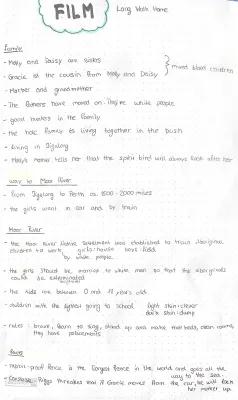 FILM
Long Walk Home
Family
- Molly and Daisy are sisters
- Gracie is the cousin from Molly and Daisy
} mixed blood children
- Mother and grandmother
- The fathers have moved on
- good hunters in the family
- the hole family is living together in the bush
- living in Jigalong
- Molly's mother tells her that the spirit bird will always look after her
way to Moor River
- from Jigalong to Perth ca. 1500-2000 miles
- the girls went in car and by train
Moor River
- the Moor River Native Settlement was established to train aborigine
children to work
by white people
- the girls should be married to white men so that the aboriginals
could be exterminated
- the kids are between 0 and years old
- children with the lightest going to school
light skin = clever
dark skin = dump
- rules: learn to sing, stand up and make their beds, clean rooms,
they have punishments
- rabbit-proof fence is the longest fence in the world and goes all the
way to the sea
- Constable Riggs threatens that if Gracie moves from the car, he will lock
her mother up